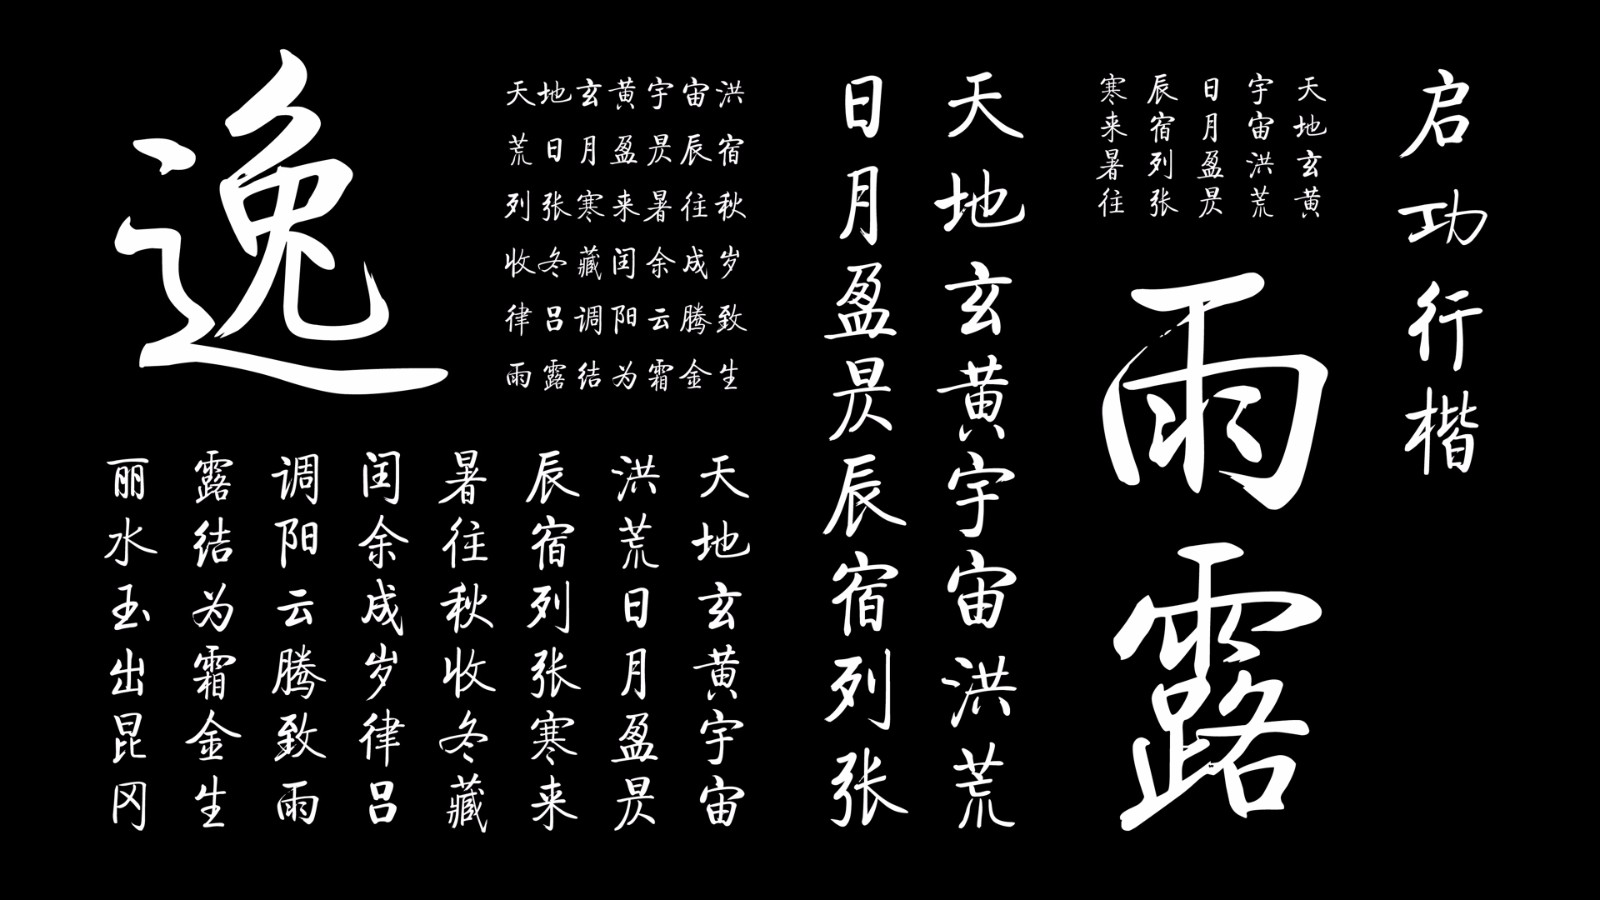 启功行楷
天地玄黄
宇宙洪荒
日月盈昃
辰宿列张
寒来暑往
雨露
天地玄黄宇宙洪荒
日月盈昃辰宿列张
逸
天地玄黄宇宙洪
荒日月盈昃辰宿
列张寒来暑往秋
收冬藏闰余成岁
律吕调阳云腾致
雨露结为霜金生
天地玄黄宇宙
洪荒日月盈昃
辰宿列张寒来
暑往秋收冬藏
闰余成岁律吕
调阳云腾致雨
露结为霜金生
丽水玉出昆冈